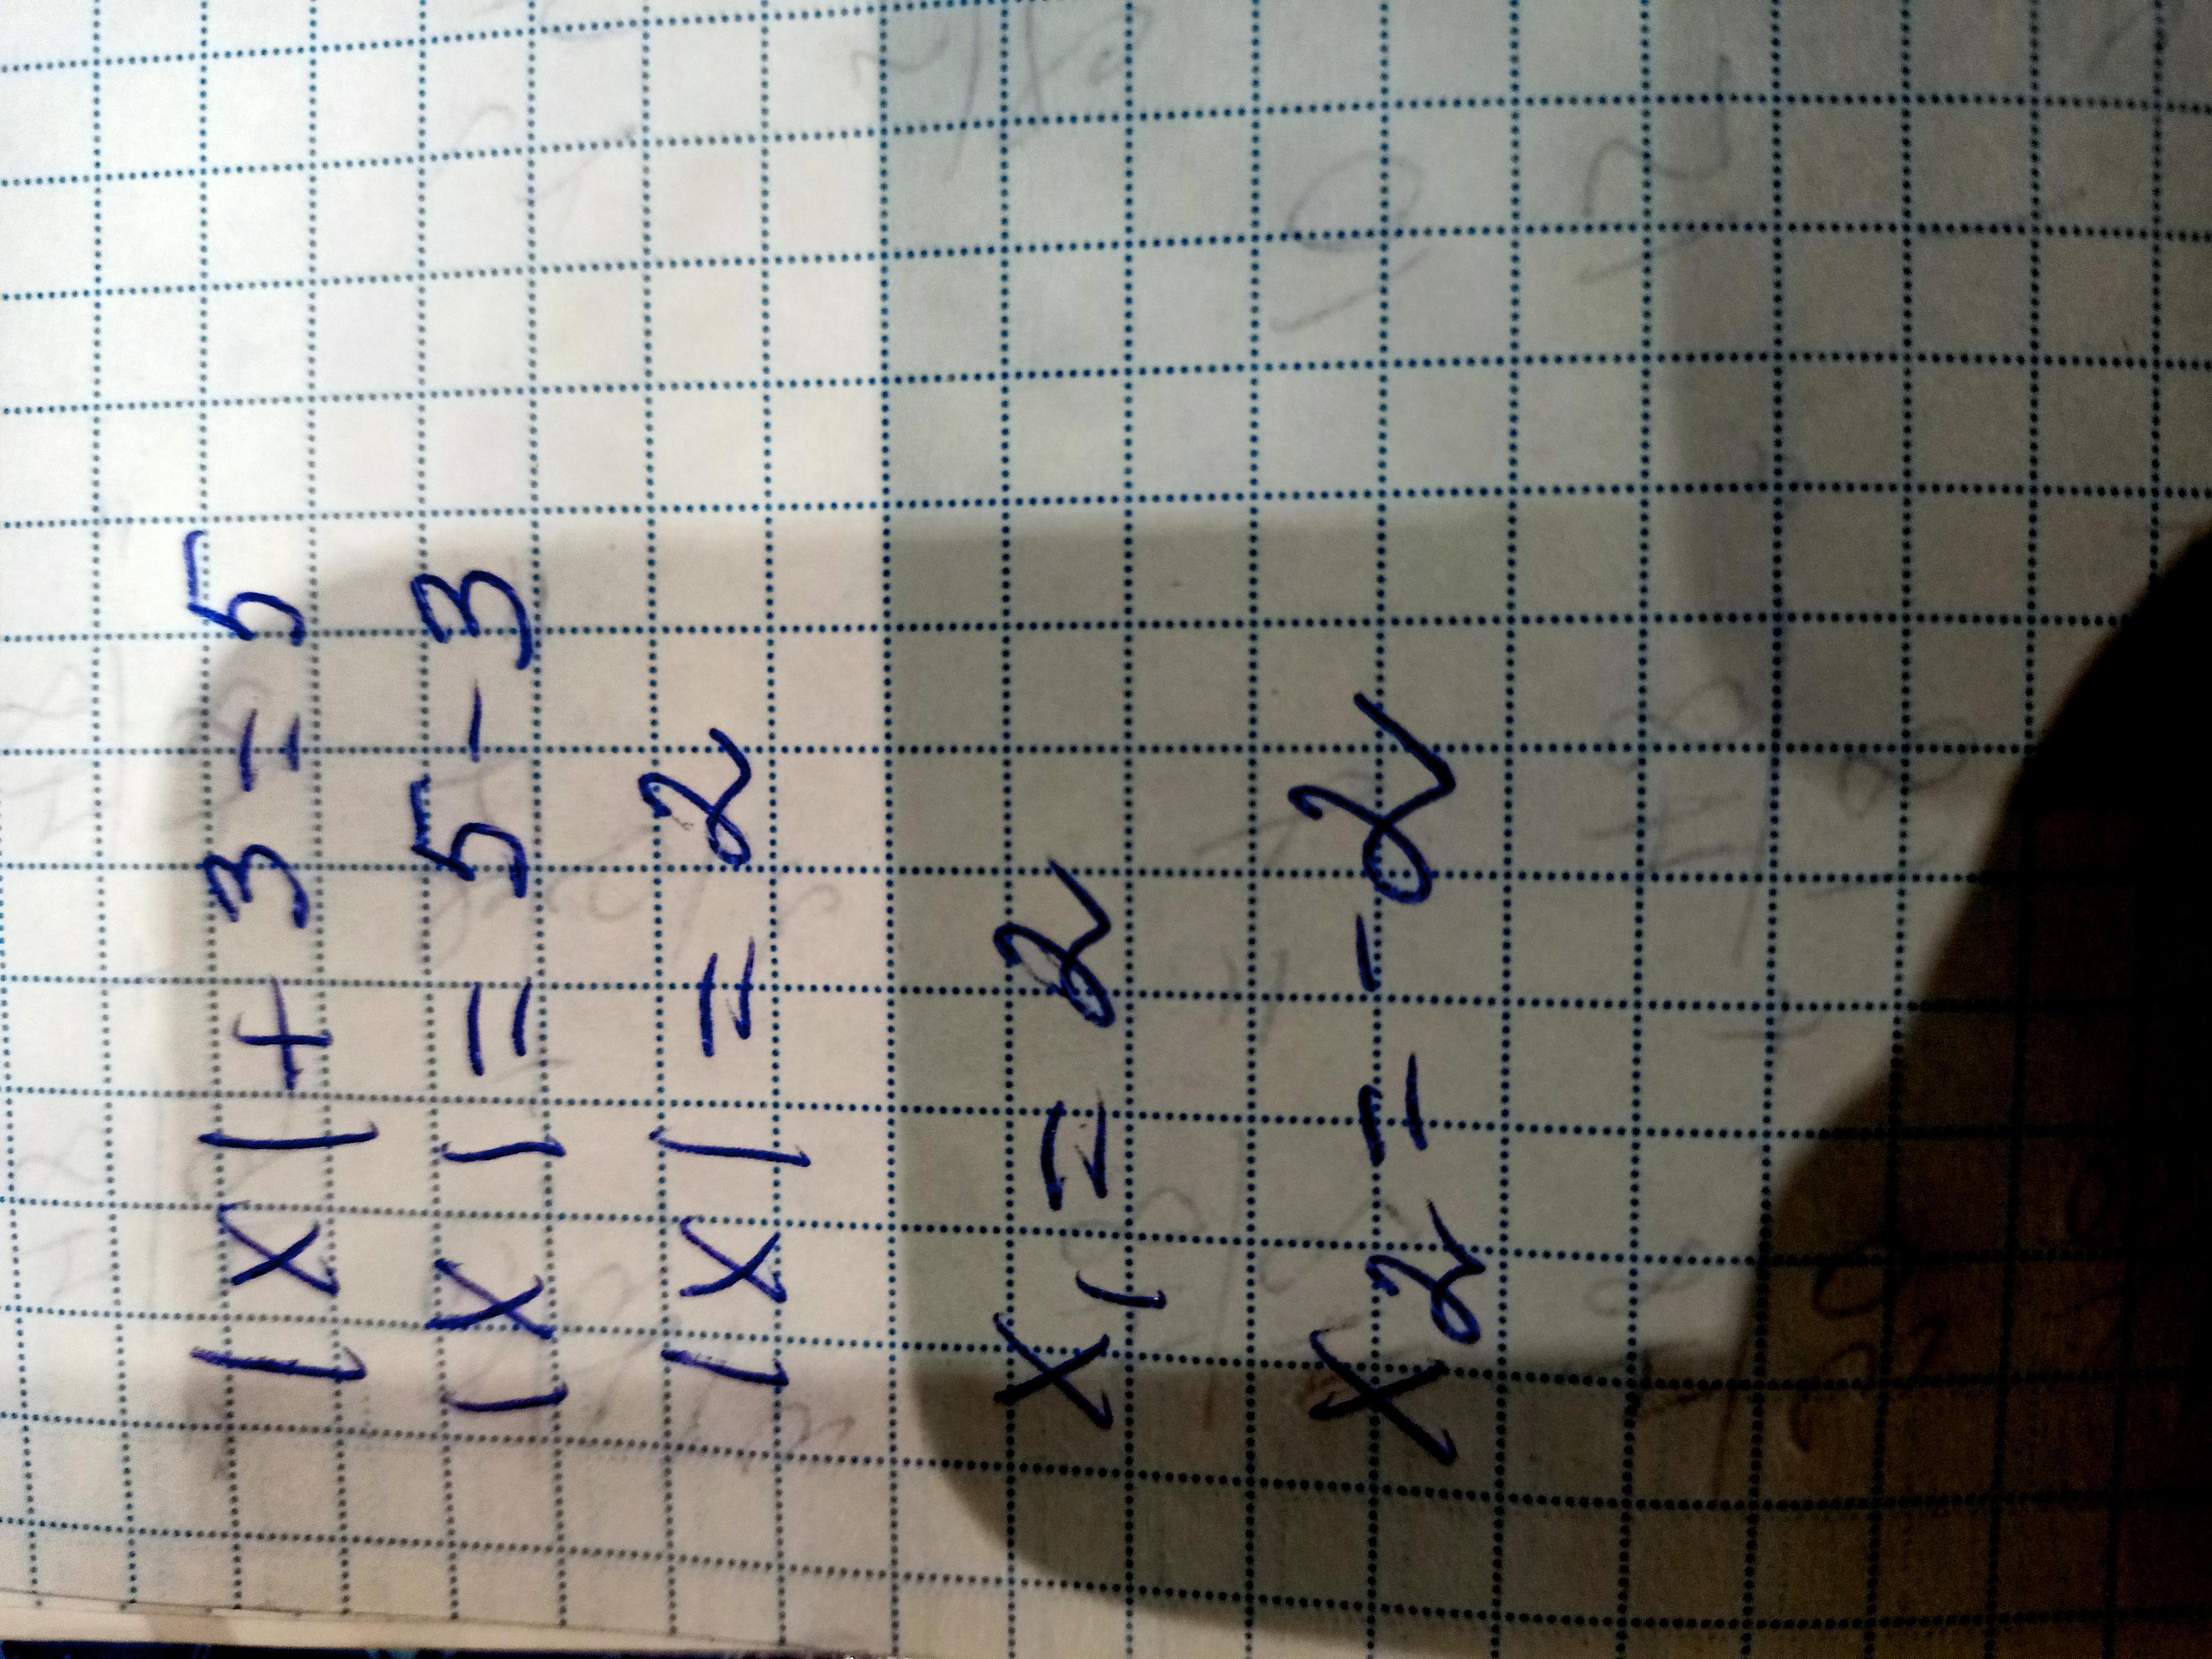 |x| + 3 = 5
|x| = 5 - 3
|x| = 2
x₁ = 2
x₂ = -2